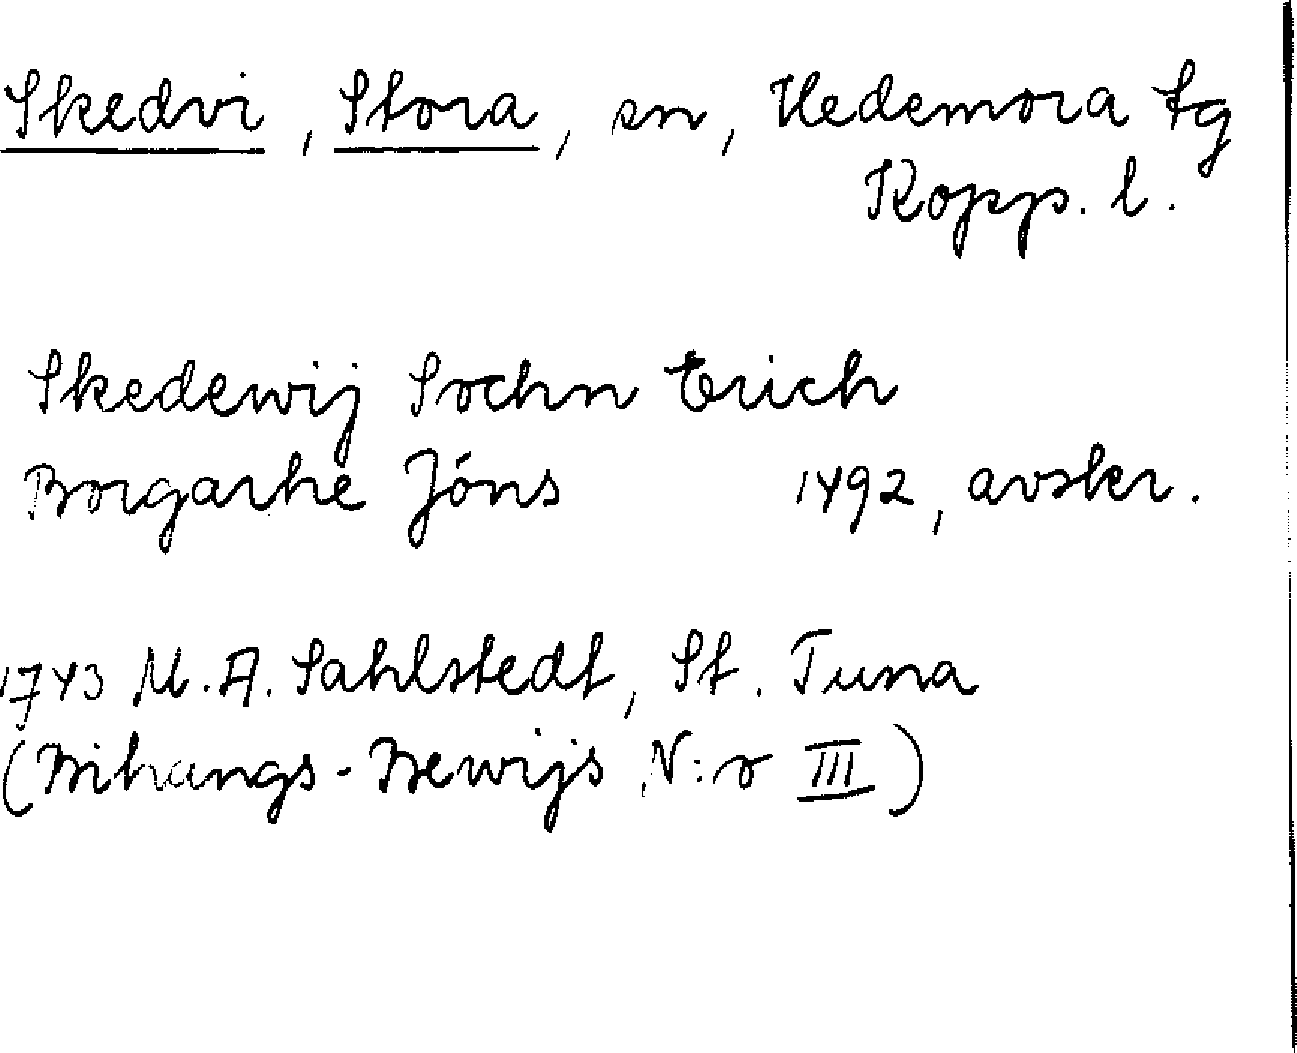 Skedvi, Stora, sn, Hedemora tg
Kopp. l.
Skedewij Sochn Erich
Borgarhe Jóns 1492, avskr.
1743 M. A. Sahlstedt, St. Tuna
(Bihangs-Bewijs N:o III)